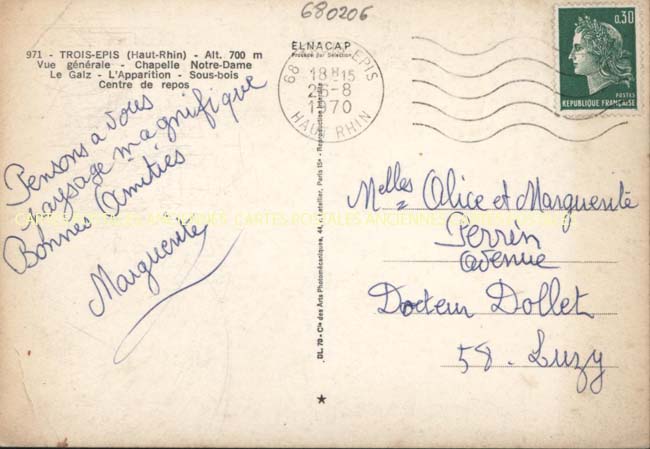 680206
971 - TROIS-EPIS (Haut-Rhin) - Alt. 700 m
Vue générale - Chapelle Notre-Dame
Le Galz - L'Apparition - Sous-bois
Centre de repos
ELNACAP
Procédé par Sélection
68 TROIS-EPIS
18H15
26-8
1970
HAUT RHIN
0,30
POSTES
REPUBLIQUE FRANÇAISE
Pensons a vous
paysage magnifique
Bonnes Amitiés
Marguerite
DL. 70 - Cie des Arts Photomécaniques, 44, Paris 15e - Reproduction interdite
Melles Alice et Marguerite
Perrin
avenue
Docteur Dollet
58. Luzy
CARTES POSTALES ANCIENNES